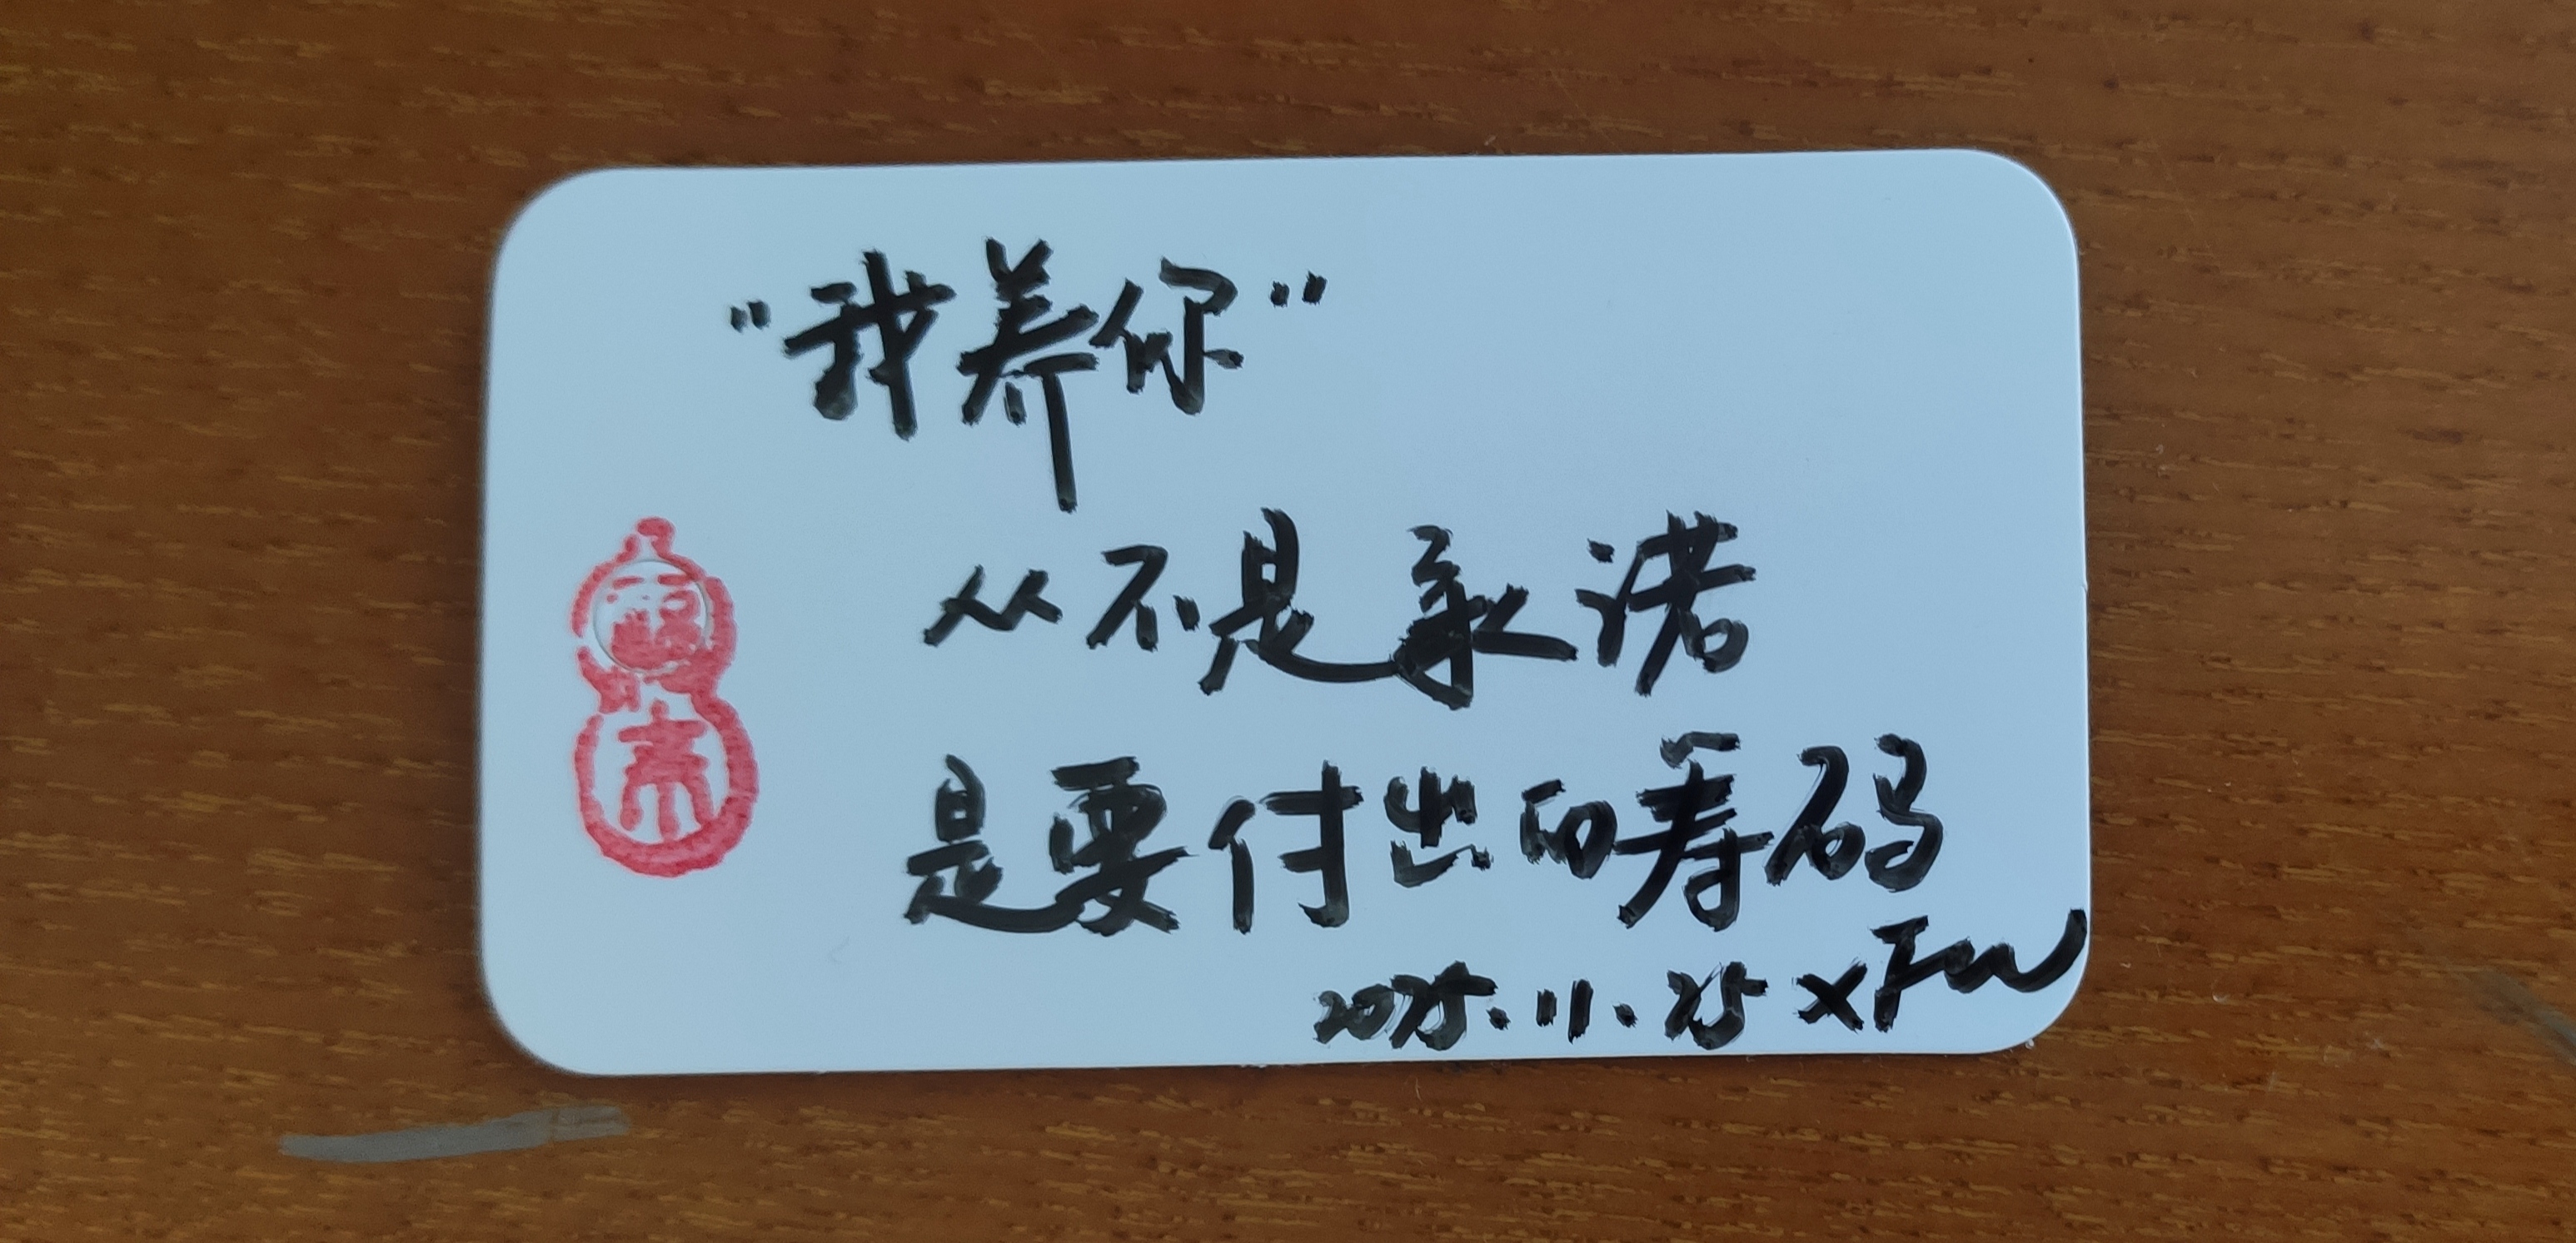 "我养你"
从不是承诺
是要付出的筹码
2025.11.25